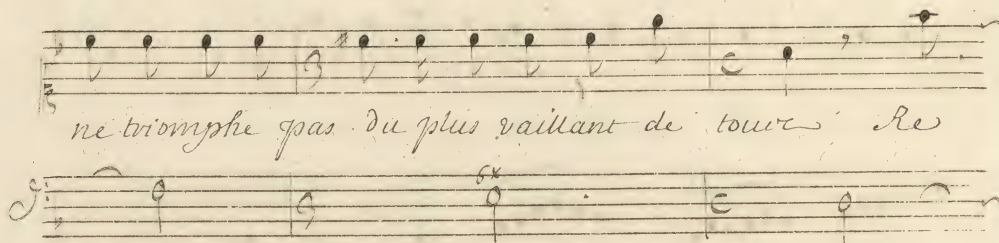 ne triomphe pas du plus vaillant de tous Re
6x